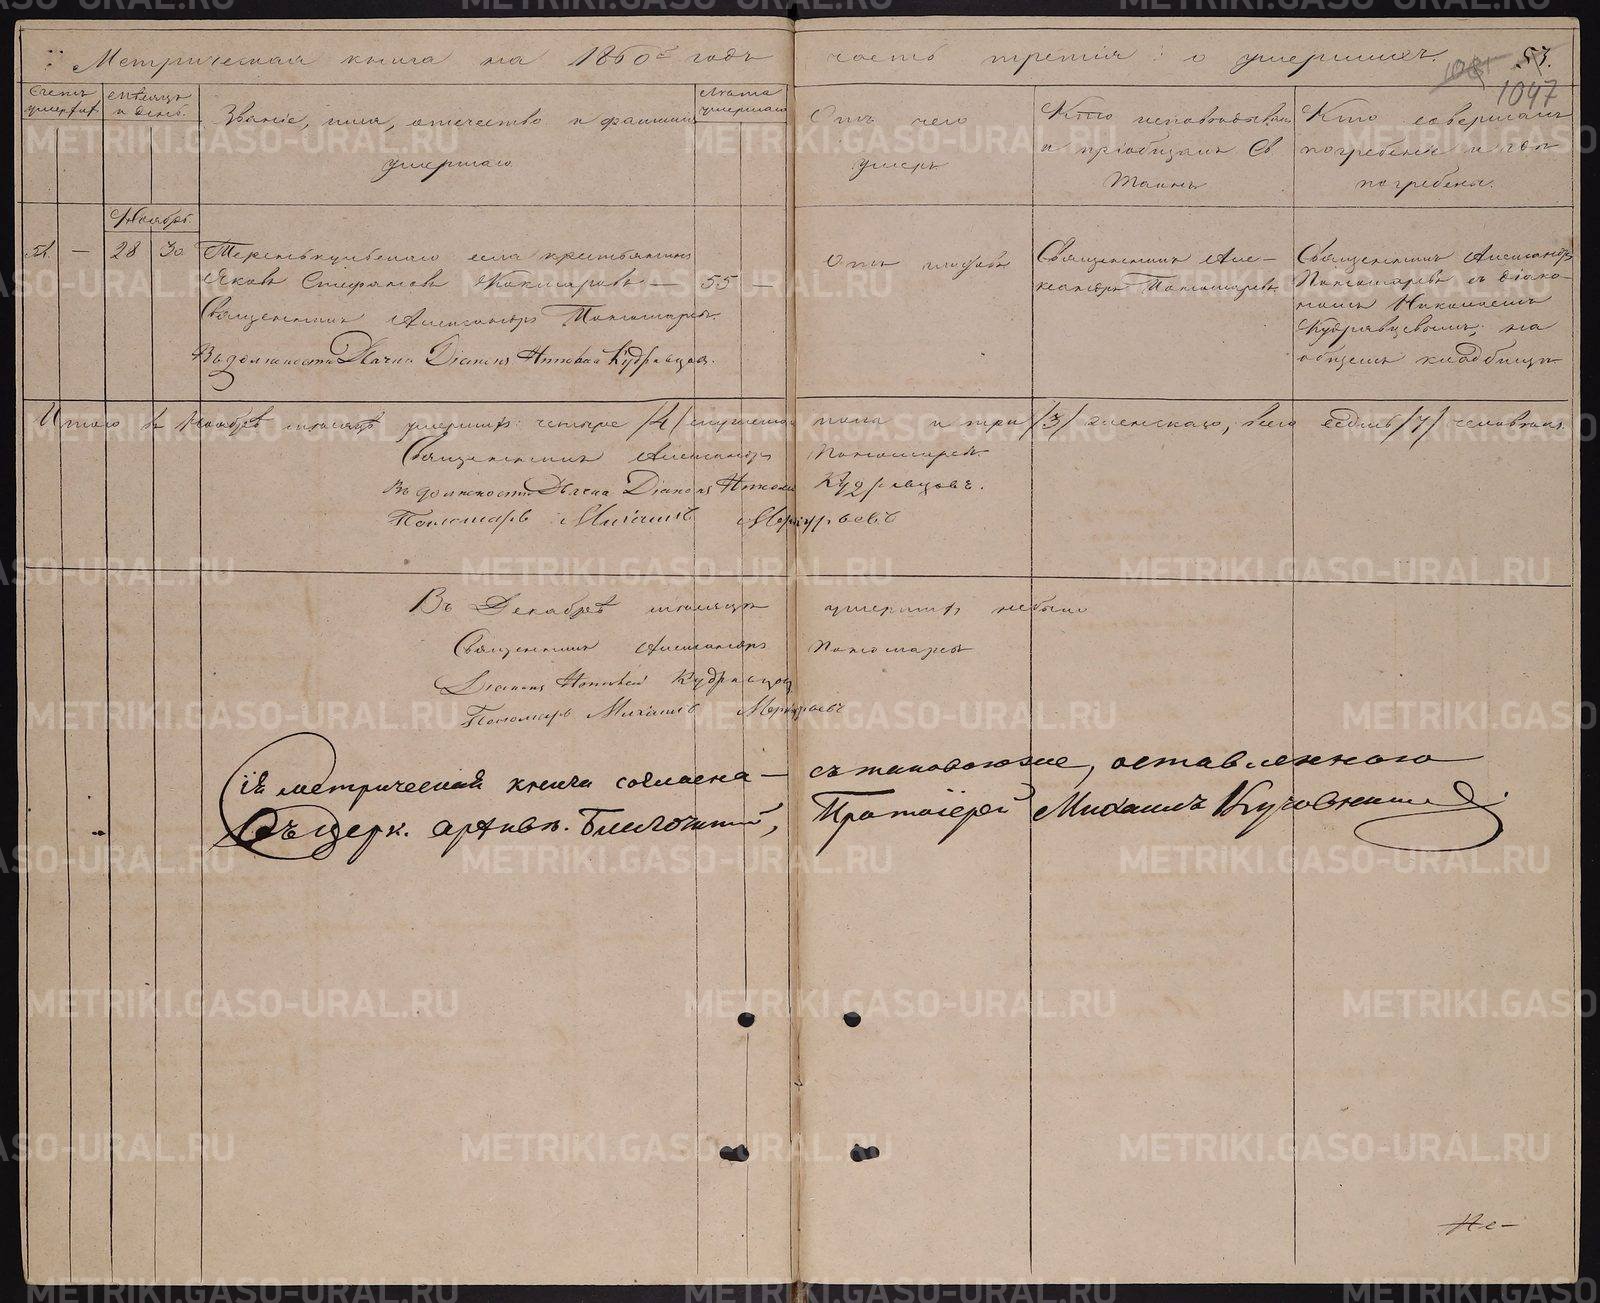 Метрическая книга на 1860й годъ часть третія: о умершихъ.
1047
53.
Счетъ умерших
Мѣсяцъ и день.
Званіе, имя, отчество и фамилія умершаго
Лѣта умершаго
Отъ чего умеръ
Кто исповѣдывалъ и пріобщалъ Св Таинъ
Кто совершалъ погребеніе и гдѣ погребены.
Ноябрь.
51. — 28 30
села крестьянинъ
Яковъ Стефановъ — 55 —
Священникъ Александръ Пономаревъ.
Въ должности Дьячка Діаконъ Николай Кудрявцовъ.
Отъ
Священникъ Але-
ксандръ Пономаревъ
Священникъ Александръ
Пономаревъ съ діако-
номъ Николаемъ
Кудрявцевымъ, на
общемъ кладбищѣ
Итого въ Ноябрѣ мѣсяцѣ умершихъ: четыре /4/ мужеска пола и три /3/ женскаго, всего седмь /7/ человѣкъ.
Священникъ Александръ Пономаревъ.
Въ должности Дьячка Діаконъ Николай Кудрявцовъ.
Пономарь Михаилъ Меркурьевъ
Въ Декабрѣ мѣсяцѣ умершихъ небыло
Священникъ Александръ Пономаревъ
Діаконъ Николай Кудрявцовъ
Пономарь Михаилъ Меркурьевъ
Сія метрическая книга согласна — съ таковою же, оставленною
въ церк. архивѣ. Благочинный, Протоіерей Михаилъ
Не-
METRIKI.GASO-URAL.RU